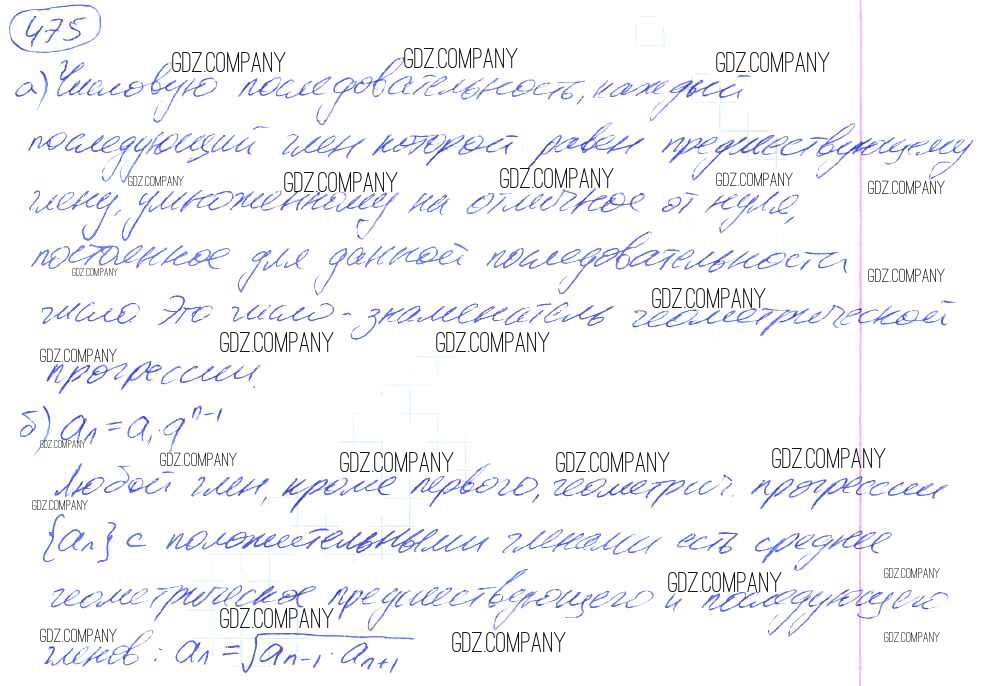 475
GDZ.COMPANY GDZ.COMPANY GDZ.COMPANY
а) Числовую последовательность, каждый
последующий член которой равен предшествующему
GDZ.COMPANY GDZ.COMPANY GDZ.COMPANY GDZ.COMPANY GDZ.COMPANY
члену, умноженному на отличное от нуля,
постоянное для данной последовательности
GDZ.COMPANY GDZ.COMPANY
GDZ.COMPANY
числа Это число - знаменатель геометрической
GDZ.COMPANY GDZ.COMPANY GDZ.COMPANY
прогрессии.
б) aₙ = a₁ · qⁿ⁻¹
GDZ.COMPANY
GDZ.COMPANY GDZ.COMPANY GDZ.COMPANY GDZ.COMPANY
Любой член, кроме первого, геометрич. прогрессии
GDZ.COMPANY
{aₙ} с положительными членами есть среднее
GDZ.COMPANY GDZ.COMPANY
геометрическое предшествующего и последующего
GDZ.COMPANY
GDZ.COMPANY GDZ.COMPANY GDZ.COMPANY
членов: aₙ = √(aₙ₋₁ · aₙ₊₁)